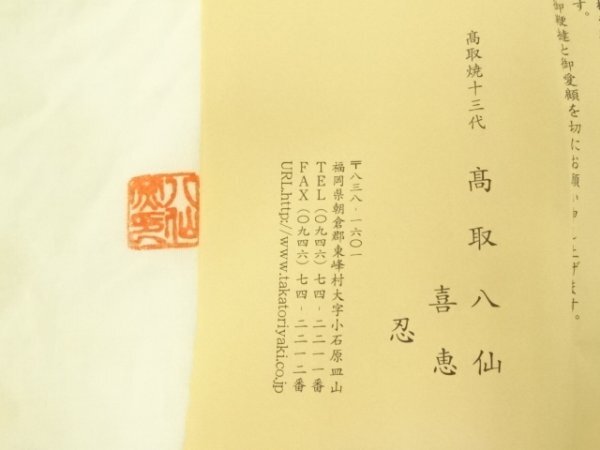 す。
御鞭撻と御愛顧を切にお願い申し上げます。
髙取焼十三代
髙取八仙
喜恵
忍
〒八三八‐一六〇一
福岡県朝倉郡東峰村大字小石原皿山
TEL(〇九四六)七四‐二二一一番
FAX(〇九四六)七四‐二二一二番
URL.http://www.takatoriyaki.co.jp
八仙